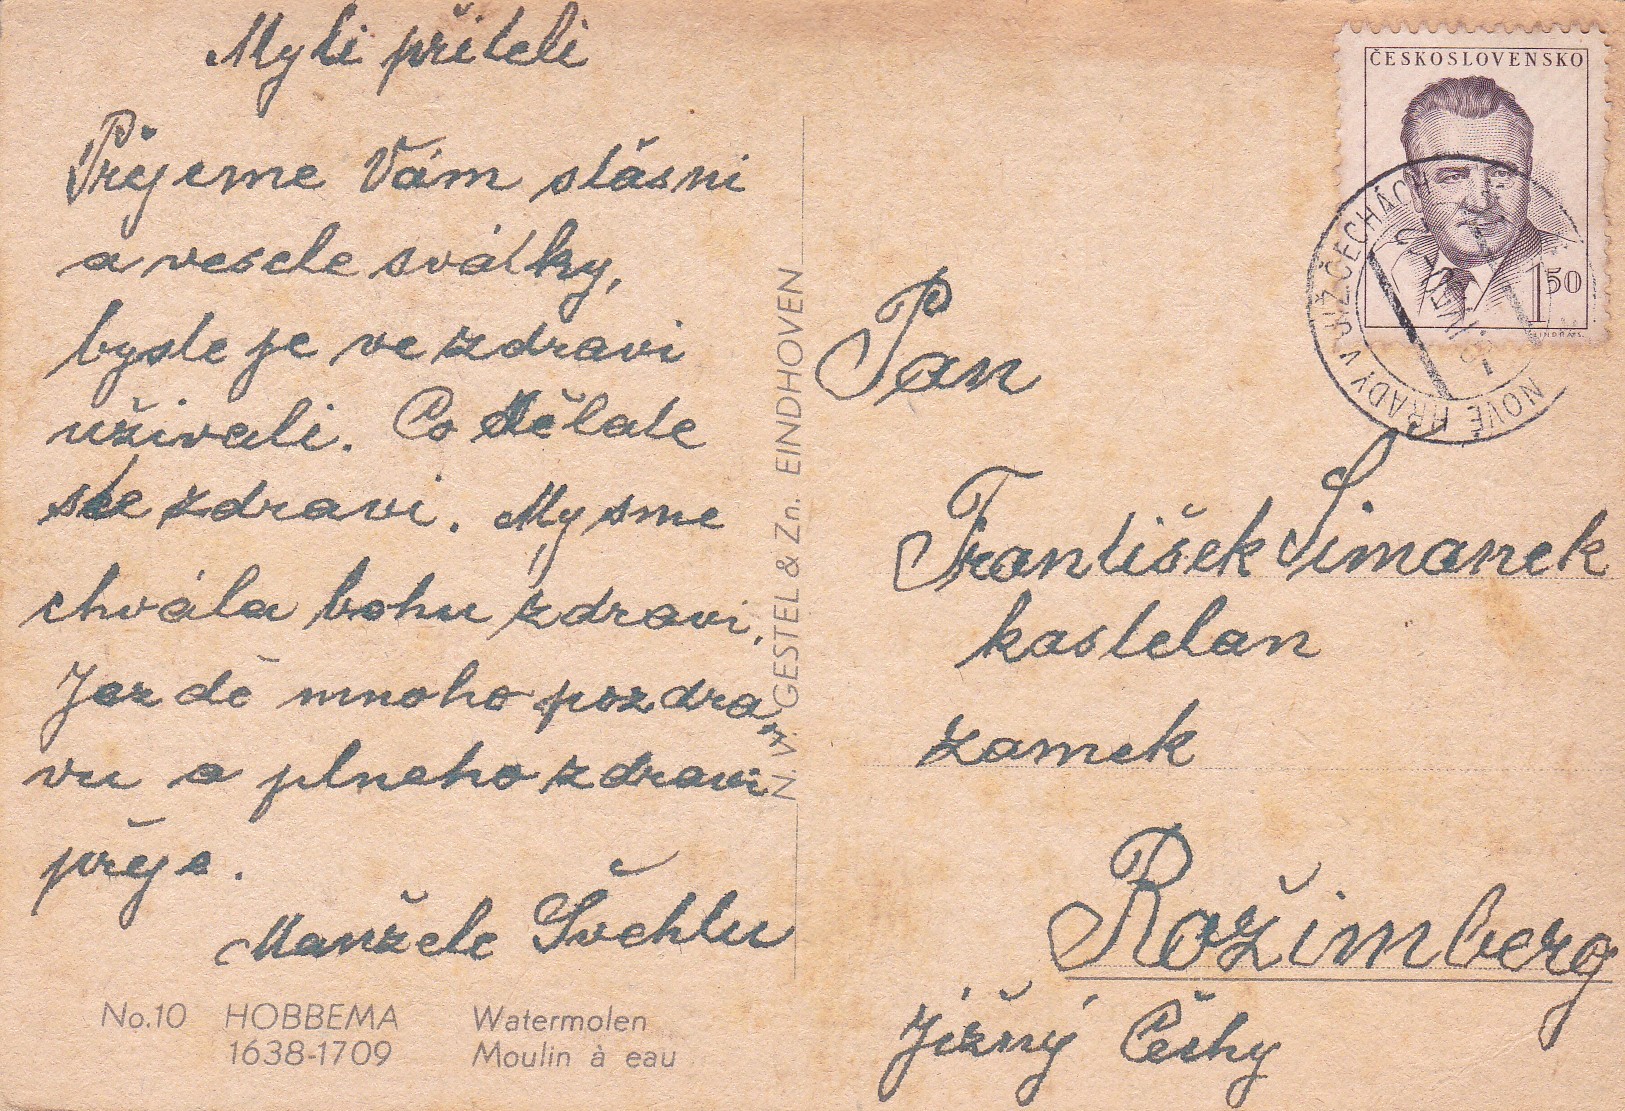 Myli přiteli
Přejeme Vám stásni
a vesele svátky,
byste je ve zdravi
uživali. Co děláte
ste zdravi. My sme
chvála bohu zdravi,
Jez dě mnoho pozdra
vu a plneho zdravi
přeje.
Manžele Švehlu
No.10 HOBBEMA Watermolen
1638-1709 Moulin à eau
N.V. GESTEL & Zn. EINDHOVEN
ČESKOSLOVENSKO
1 50
NOVÉ HRADY V JIŽ. ČECHÁCH
Pan
František Šimanek
kastelan
zamek
Rožimberg
Jižný Čechy